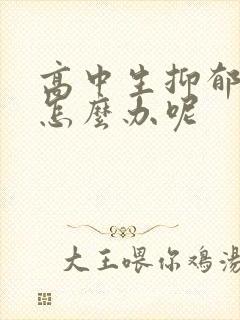 高中生抑郁
怎麼办呢
大王喂你鸡湯